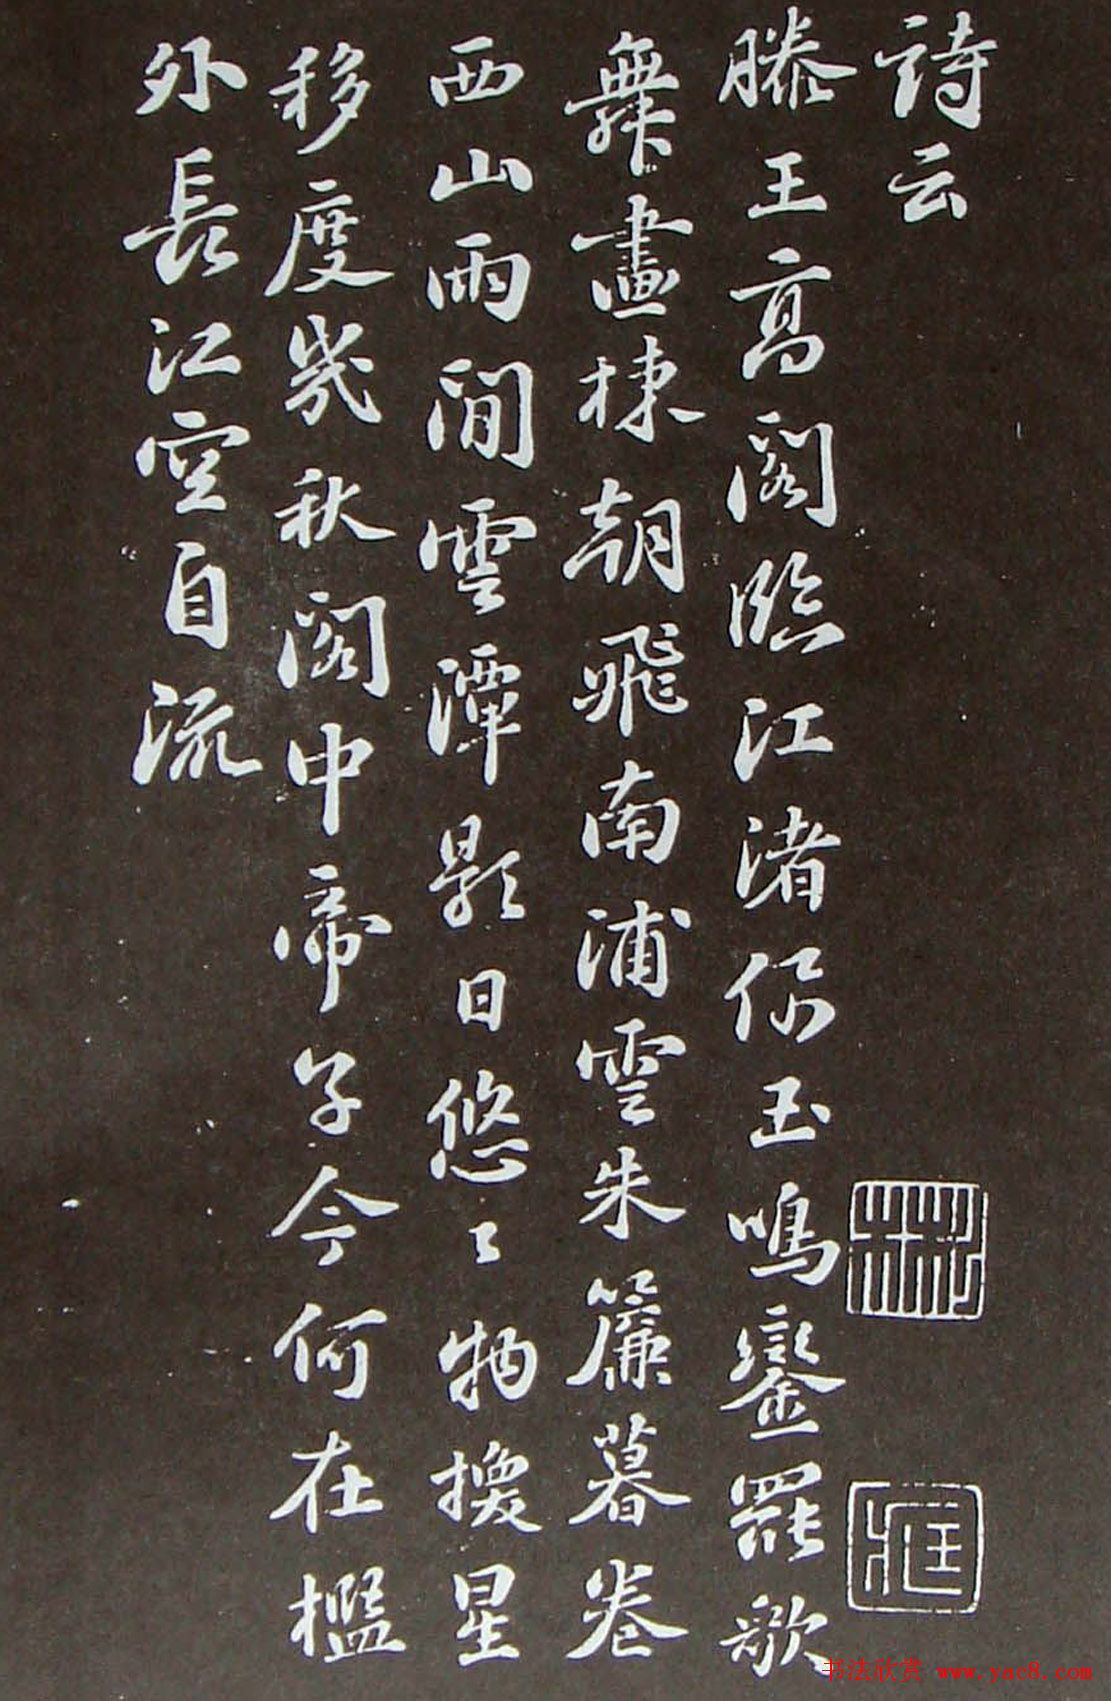 詩云
滕王高閣臨江渚佩玉鳴鑾罷歌
舞畫棟朝飛南浦雲朱簾暮卷
西山雨閒雲潭影日悠々物換星
移度幾秋閣中帝子今何在檻
外長江空自流
书法欣赏 www.yac8.com